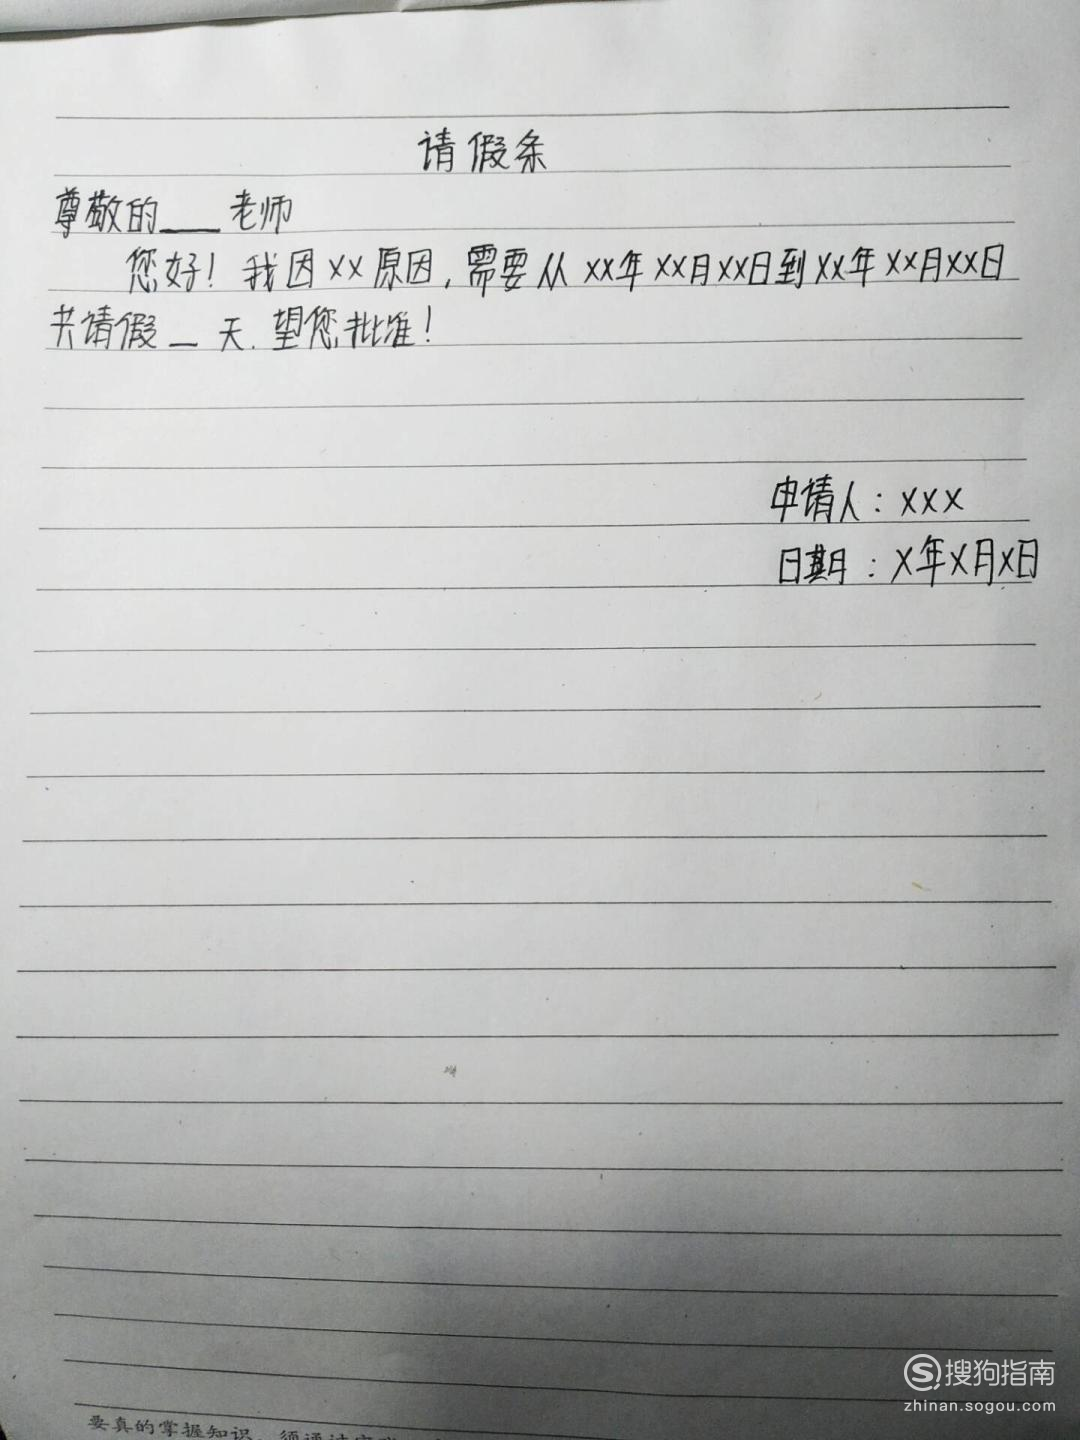 请假条
尊敬的___老师
您好！我因XX原因，需要从XX年XX月XX日到XX年XX月XX日
共请假_天.望您批准！
申请人：XXX
日期：X年X月X日
搜狗指南
zhinan.sogou.com
要真的掌握知识，须通过